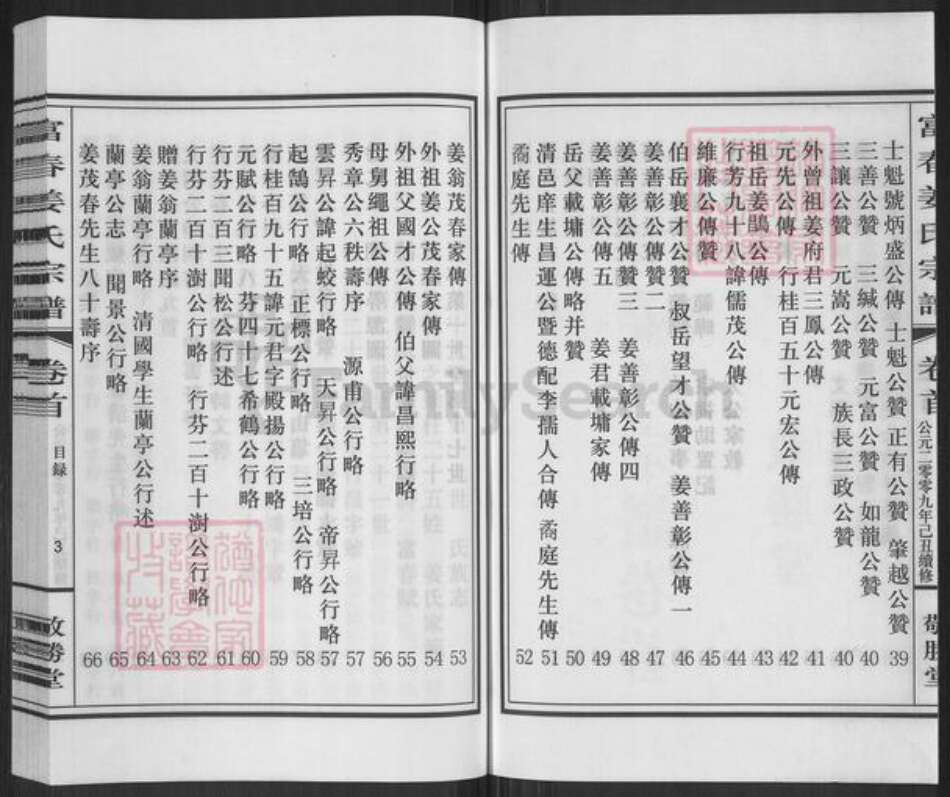 富春姜氏宗譜
卷首
公元二零零九年己丑續修
敬勝堂
士魁號炳盛公傳 士魁公贊 正有公贊 肇越公贊 39
三善公贊 三緘公贊 元富公贊 如龍公贊 40
三讓公贊 元嵩公贊 族長三政公贊 40
外曾祖姜府君三鳳公傳 41
元先公傳 行桂百五十元宏公傳 42
祖岳姜鵾公傳 43
行芳九十八諱儒茂公傳 44
維廉公傳贊 45
伯岳襄才公贊 叔岳望才公贊 姜善彰公傳一 46
姜善彰公傳贊二 47
姜善彰公傳贊三 姜善彰公傳四 48
姜善彰公傳五 姜君載墉家傳 49
岳父載墉公傳略并贊 50
清邑庠生昌運公暨德配李孺人合傳 矞庭先生傳 51
矞庭先生傳 52
姜翁茂春家傳 53
外祖姜公茂春家傳 54
外祖父國才公傳 伯父諱昌熙行略 55
母舅繩祖公傳 56
秀章公六秩壽序 源甫公行略 57
雲昇公諱起蛟行略 天昇公行略 帝昇公行略 57
起鵠公行略 正標公行略 三培公行略 58
行桂百九十五諱元君字殿揚公行略 59
元賦公行略 芬四十七希鶴公行略 60
行芬二百三聞松公行述 61
行芬二百十澍公行略 行芬二百十澍公行略 62
贈姜翁蘭亭序 63
姜翁蘭亭行略 清國學生蘭亭公行述 64
蘭亭公志 聞景公行略 65
姜茂春先生八十壽序 66
富春姜氏宗譜
卷首
目録
3
敬勝堂
FamilySearch